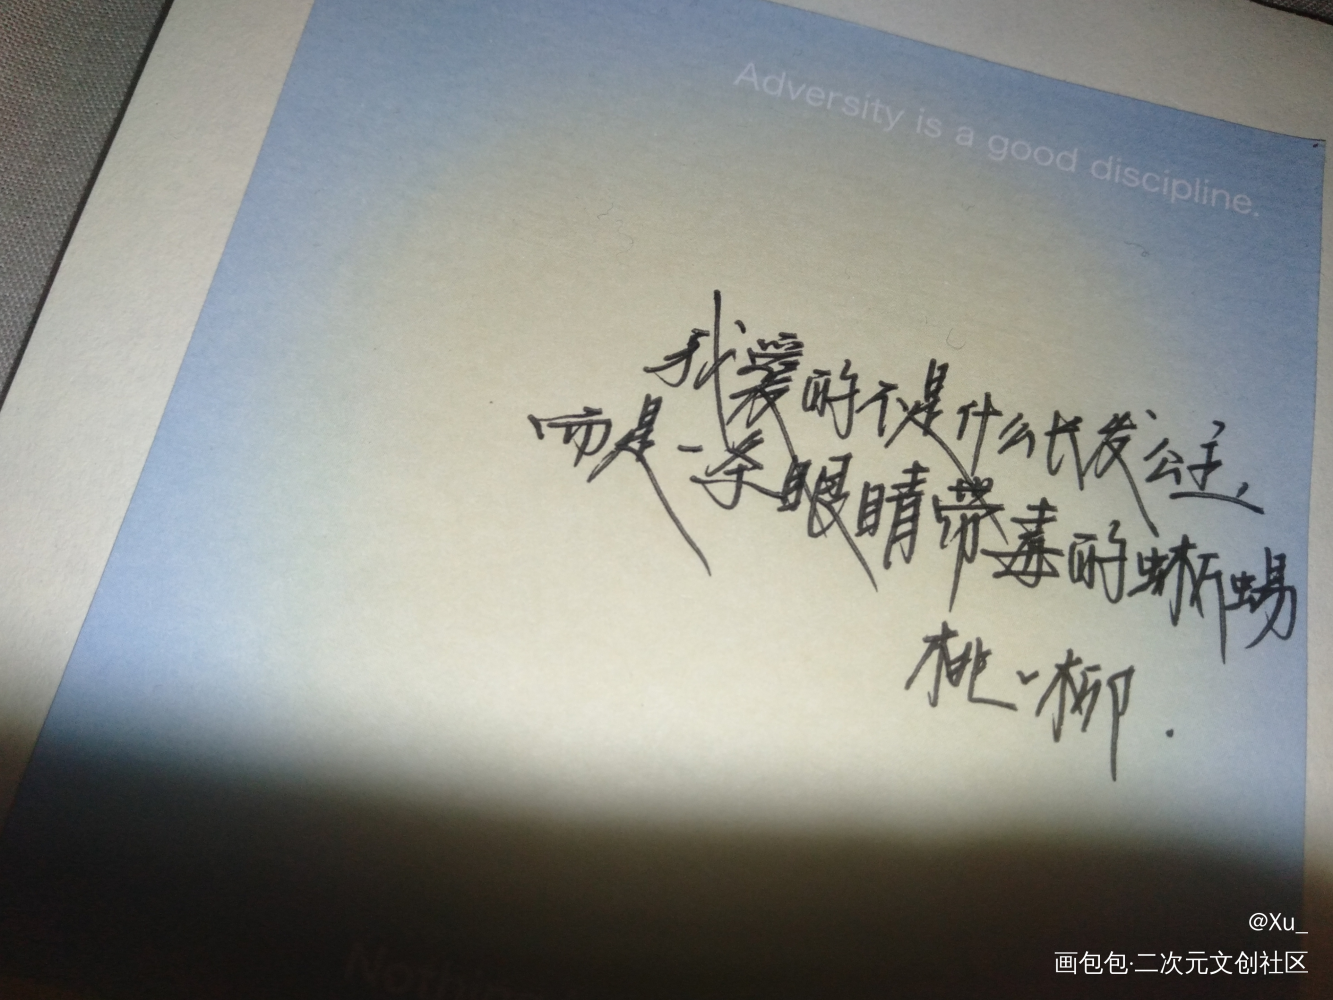 Adversity is a good discipline.
我爱的不是什么长发公主,
而是一条眼睛带毒的蜥蜴
桃柳.
@Xu_
画包包·二次元文创社区